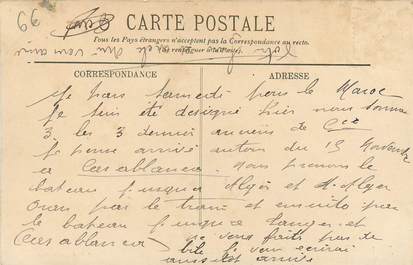 99
CARTE POSTALE
Tous les Pays étrangers n'acceptent pas la Correspondance au recto.
(se renseigner à la Poste)
CORRESPONDANCE
ADRESSE
Je pars samedi pour le Maroc
Je suis été designé hier nous somme
3. les 3 dernier anciens de Cie
Je pense arrivé autour du 15 Novembre
a Casablanca. nous prenons le
bateau jusqua Alger et d'Alger
Oran par le train et ensuite par
le bateau jusqua Tanger et
Casablanca)
ne vous faits pas de
bile je vous ecrirai
arrivé